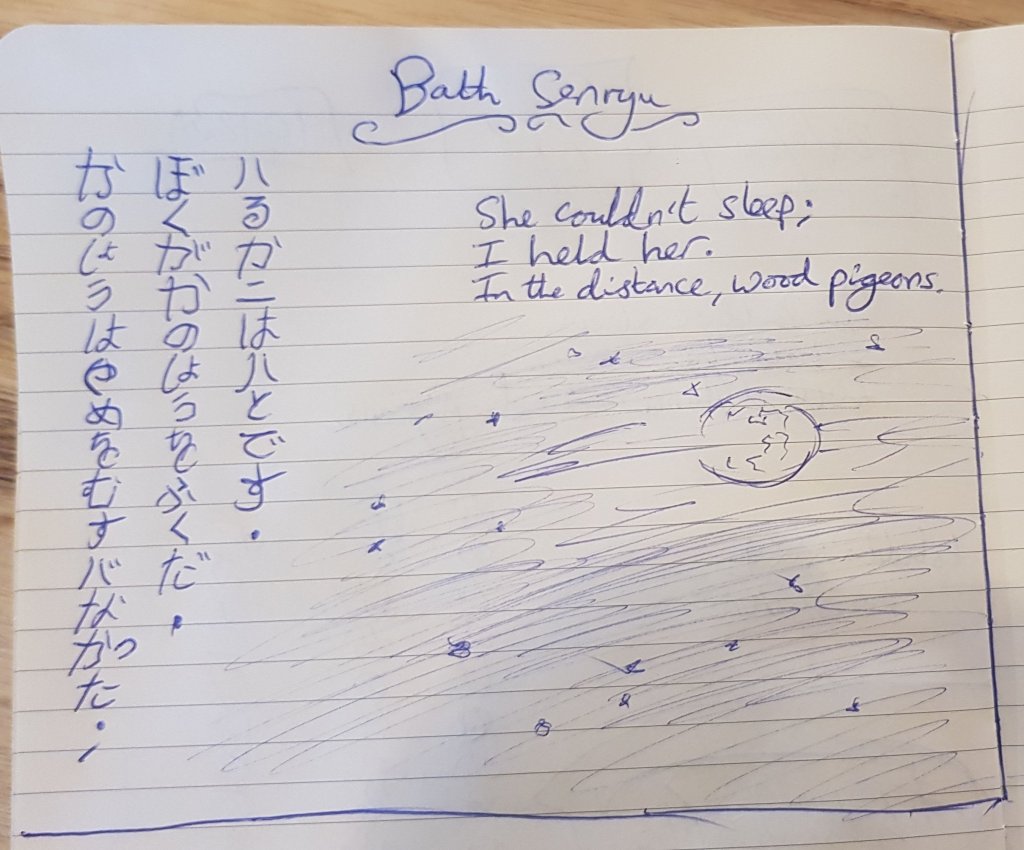 Bath Senryu
She couldn't sleep;
I held her.
In the distance, wood pigeons.
かのしょうはやめをむすバなかった;
ぼくがかのしょうをふくだ.
ハるかニはハとです.